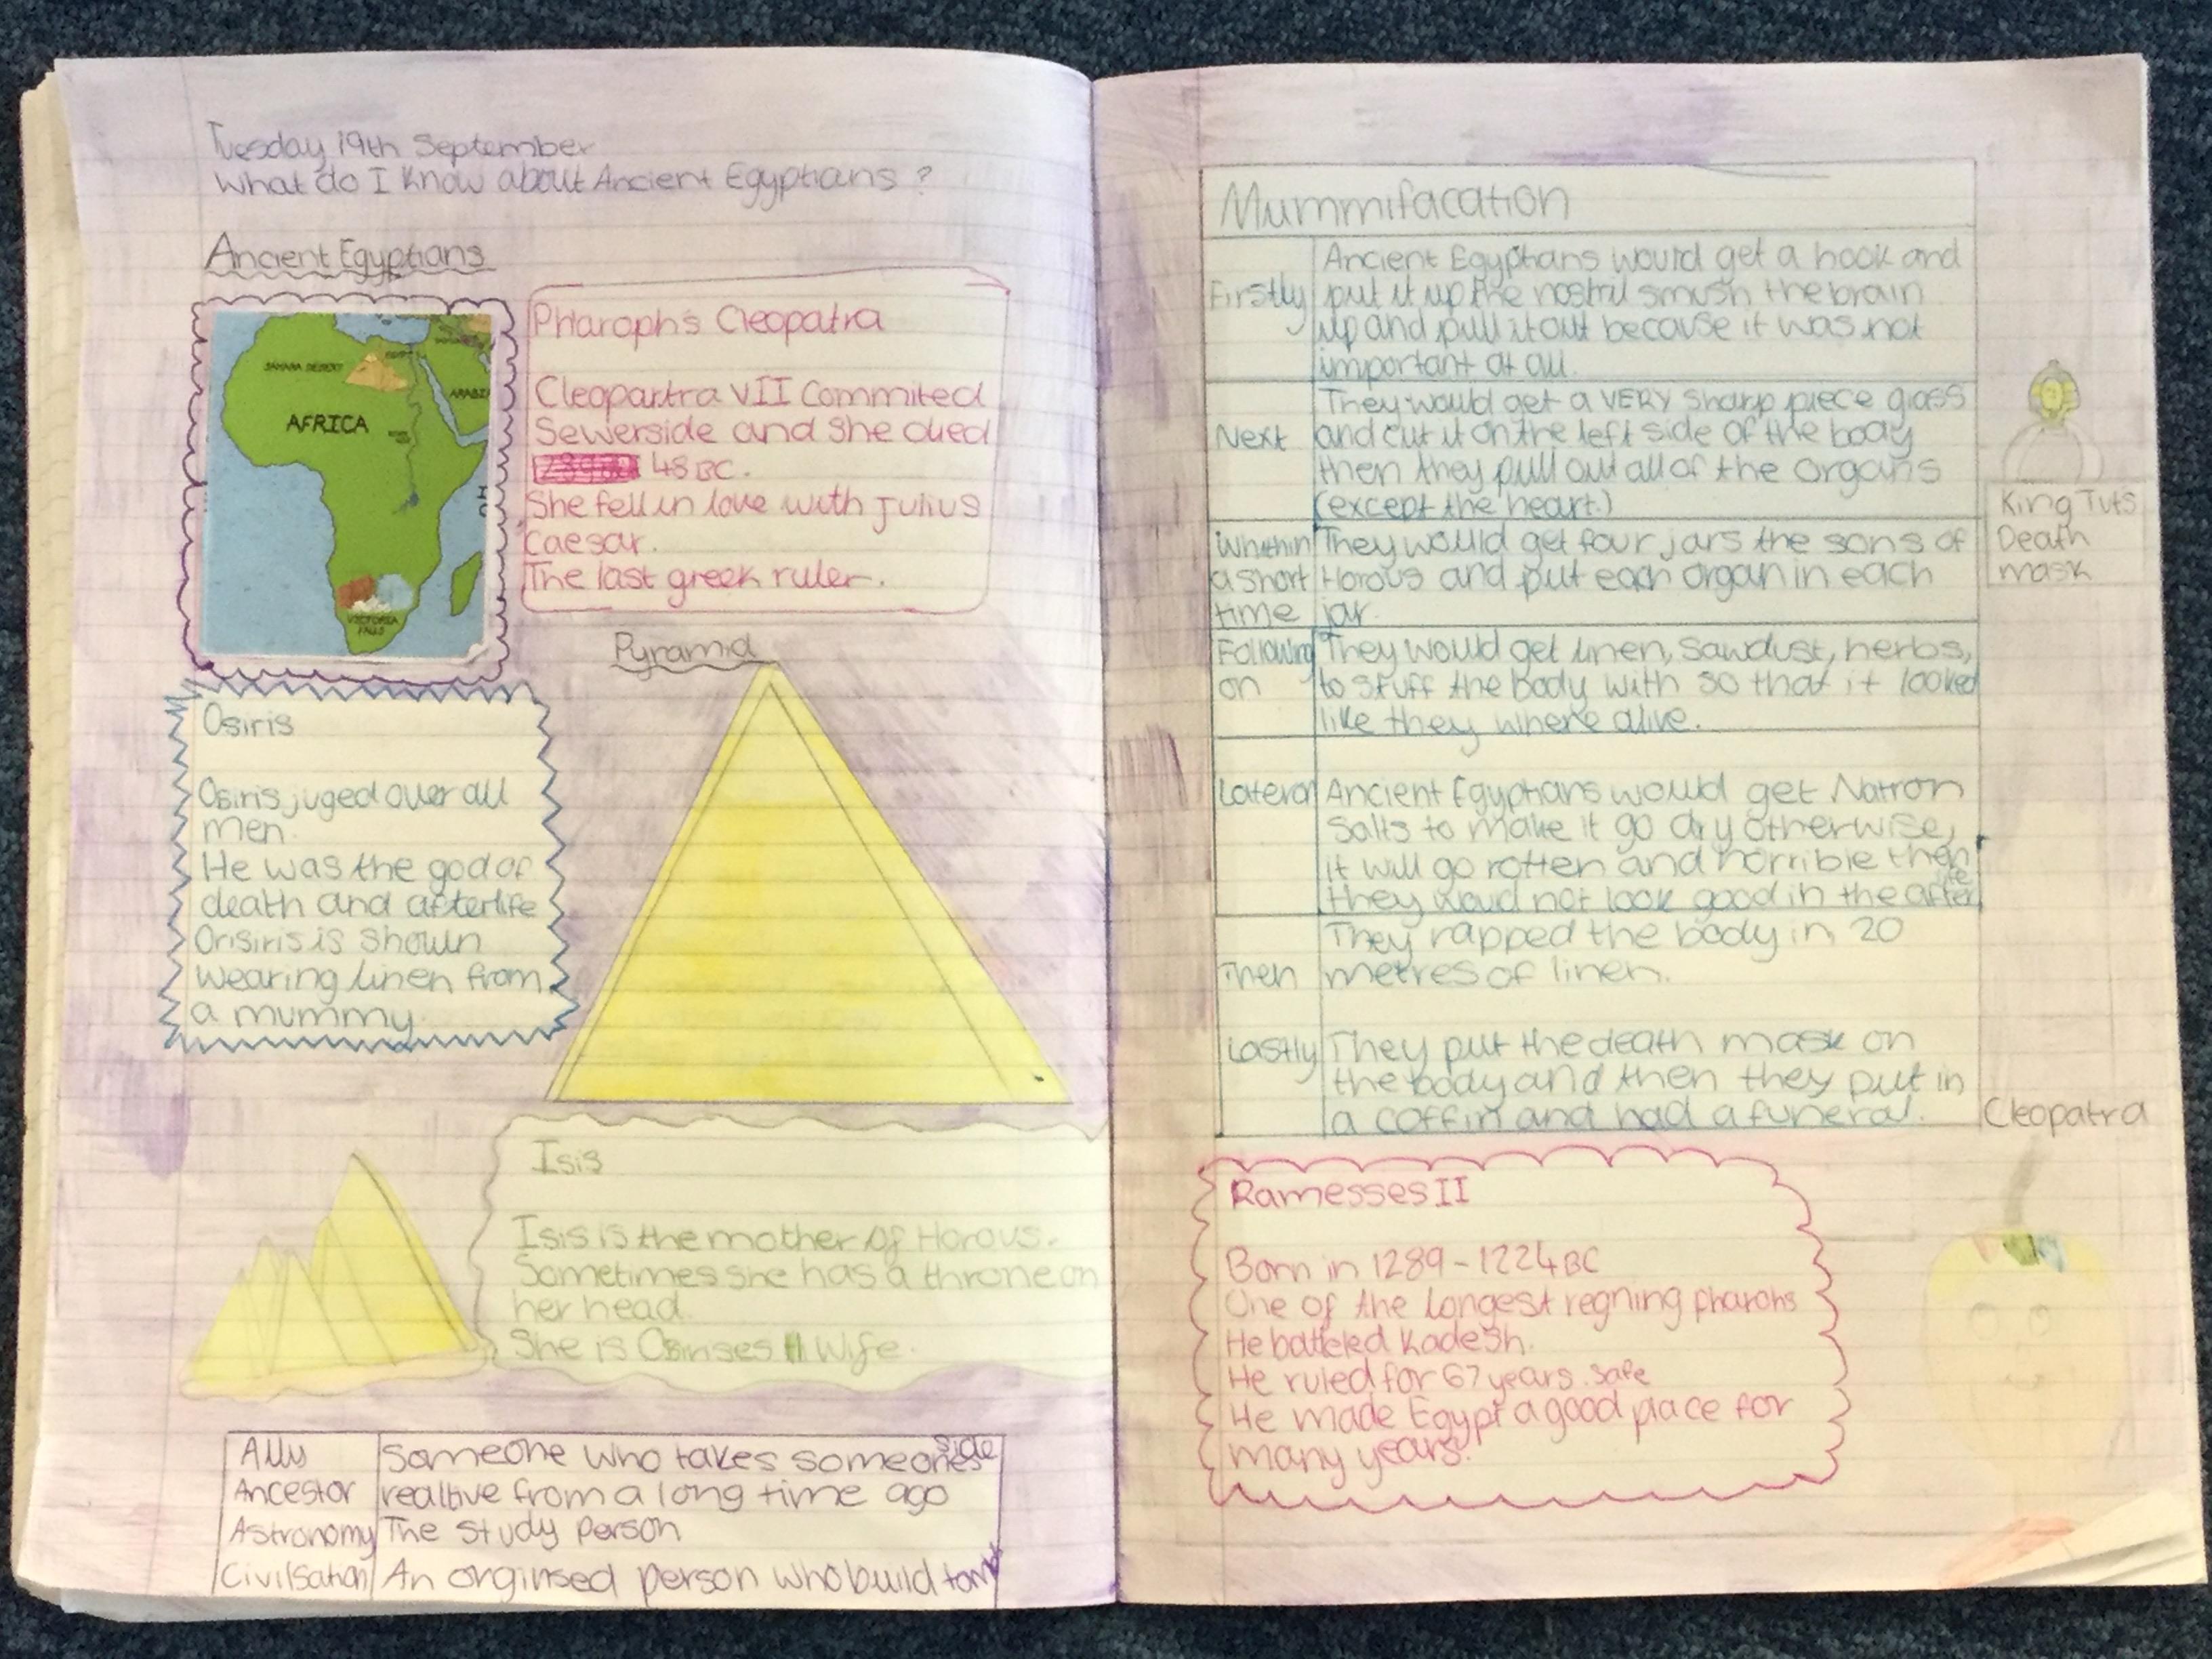 Tuesday 19th September
What do I know about Ancient Egyptians ?
Ancient Egyptians
SAHARA DESERT
EGYPT
AFRICA
VICTORIA
FALLS
Pharoph's Cleopatra
Cleopartra VII Commited
Sewerside and she died
48 BC.
She fell in love with Julius
Caesar.
The last greek ruler.
Pyramid
Osiris
Osiris juged over all
men.
He was the god of
death and afterlife
Orisiris is shown
wearing linen from
a mummy.
Isis
Isis is the mother of Horous.
Sometimes she has a throne on
her head.
She is Osirises wife.
Ally Someone who takes someones side
Ancestor realtive from a long time ago
Astronomy The study person
Civilsation An orginsed person who build
Mummifacation
Firstly
Ancient Egyptians would get a hook and
put it up the nostril smush the brain
up and pull it out because it was not
important at all.
Next
They would get a VERY sharp piece glass
and cut it on the left side of the body
then they pull out all of the organs
(except the heart.)
Whithin
a short
time
They would get four jars the sons of
Horous and put each organ in each
jar.
Following
on
They would get linen, sawdust, herbs,
to stuff the body with so that it looked
like they where alive.
Lateron
Ancient Egyptians would get Natron
salts to make it go dry otherwise,
it will go rotten and horrible then
they would not look good in the after life
Then
They rapped the body in 20
metres of linen.
Lastly
They put the death mask on
the body and then they put in
a coffin and had a funeral.
King Tuts
Death
mask
Cleopatra
Ramesses II
Born in 1289-1224 BC
One of the longest regning pharohs
He batteled Kadesh.
He ruled for 67 years. safe
He made Egypt a good place for
many years.